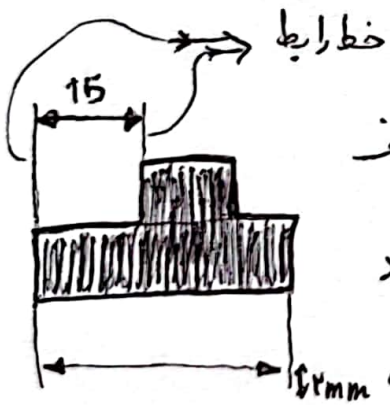 خط رابط
15
2mm